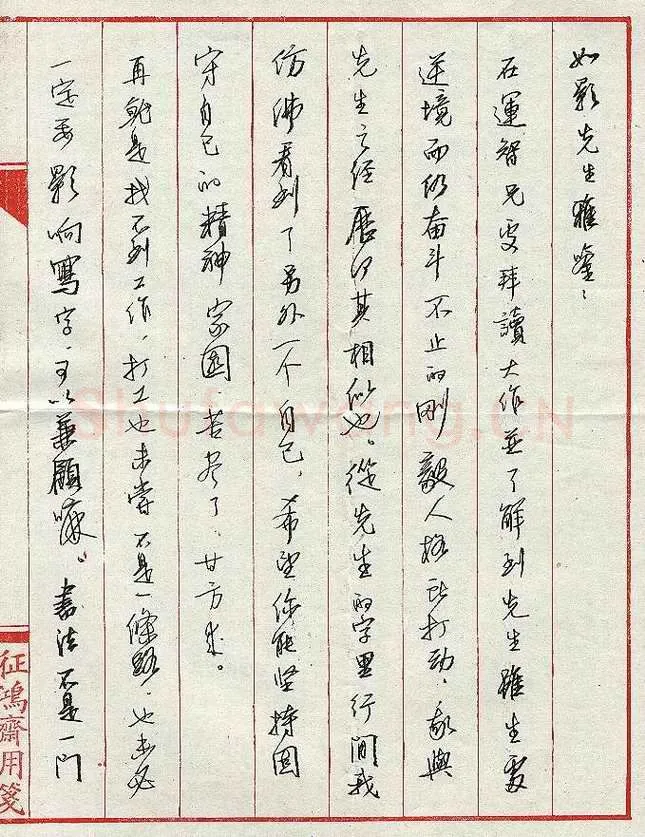 如影先生雅鉴：
在運智兄处拜讀大作並了解到先生雖生處
逆境而仍奋斗不止的刚毅人格所打动，我與
先生之经歷何其相似也。從先生的字里行間我
仿佛看到了另外一个自己，希望你能坚持固
守自己的精神家園苦尽了，甘方来。
再就是找不到工作，打工也未尝不是一條路，也未必
一定要影响寫字，可以兼顧嘛。書法不是一门
征鴻齋用箋
Shufawang.CN